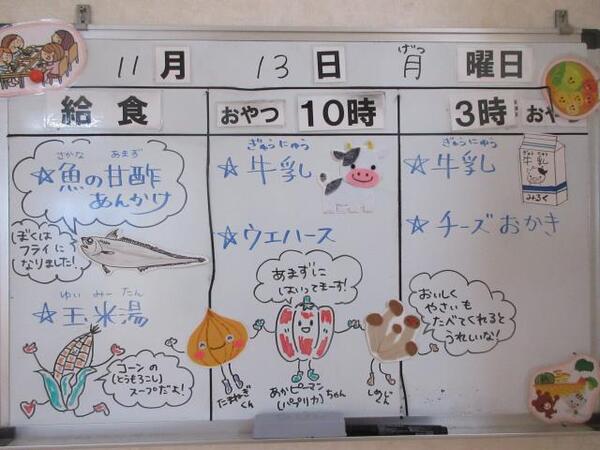 11 月 13 日 月 曜日
げつ
給食
さかな あまず
☆魚の甘酢
あんかけ
ぼくは
フライに
なりました!
ゆい みー たん
☆玉米湯
コーンの
(とうもろこし)
スープだよ!
おやつ 10時
ぎゅうにゅう
☆牛乳
☆ウエハース
あまずに
はいってまーす!
たまねぎ
くん
あかピーマン
(パプリカ)ちゃん
しめじ
くん
3時 おや
ぎゅうにゅう
☆牛乳
牛乳
みるく
☆チーズおかき
おいしく
やさいも
たべてくれると
うれしいな!